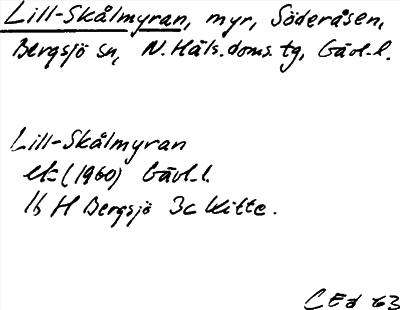 Lill-Skålmyran, myr, Söderåsen,
Bergsjö sn, N. Häls. doms. tg, Gävl. l.
Lill-Skålmyran
ek (1960) Gävl. l.
16 H Bergsjö 3c Witte.
CEd 63